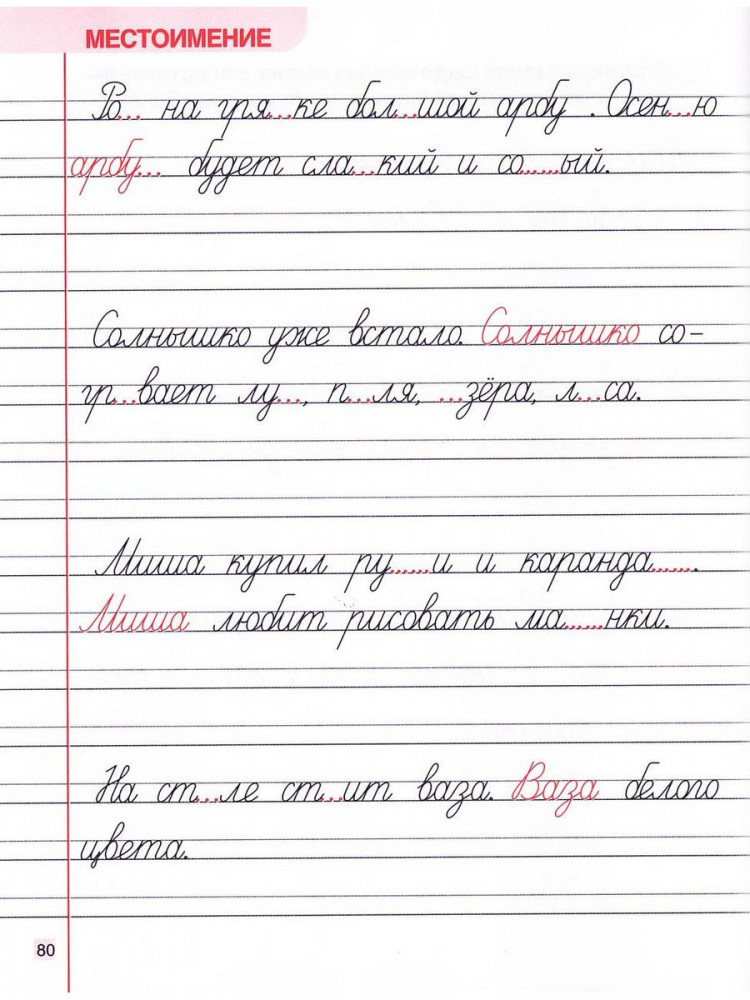 МЕСТОИМЕНИЕ
Ро... на гря...ке бол...шой арбу . Осен...ю
арбу... будет сла...кий и со......ый.
Солнышко уже встало. Солнышко со-
гр...вает лу..., п...ля, ...зёра, л...са.
Миша купил ру......и и каранда...... .
Миша любит рисовать ма......нки.
На ст...ле ст...ит ваза. Ваза белого
цвета.
80